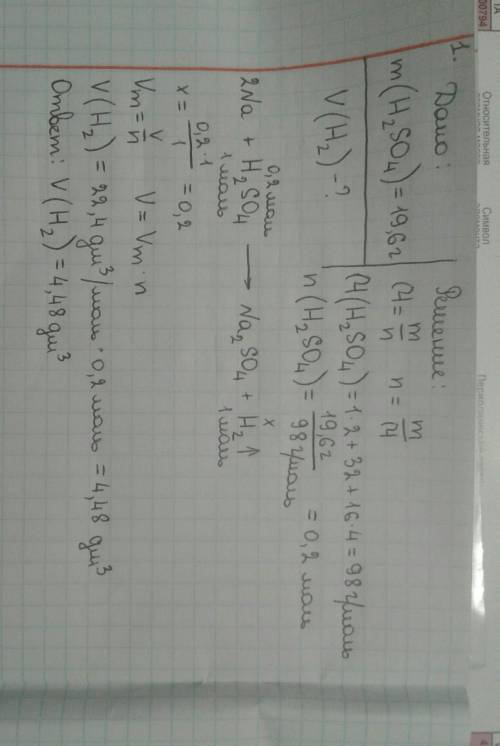 1. Дано:
m(H₂SO₄)=19,6г
V(H₂)-?
Решение:
M=m/n n=m/M
M(H₂SO₄)=1·2+32+16·4=98г/моль
n(H₂SO₄)=19,6г/98г/моль=0,2 моль
0,2моль x
2Na + H₂SO₄ → Na₂SO₄ + H₂↑
1моль 1моль
x=0,2·1/1=0,2
Vm=V/n V=Vm·n
V(H₂)=22,4 дм³/моль·0,2 моль=4,48 дм³
Ответ: V(H₂)=4,48дм³
Относительная
Символ
элемента
00794